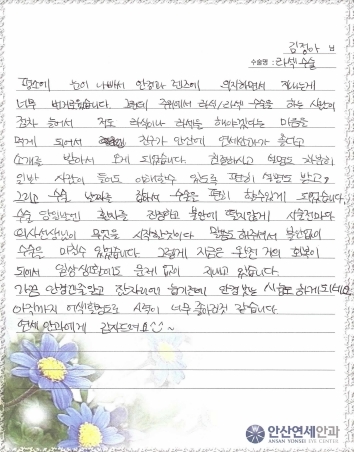 김정아 님
수술명 : 라섹수술
평소에 눈이 나빠서 안경과 렌즈에 의지하면서 지내는게
너무 번거로웠습니다. 그런데 주위에서 라식/라섹 수술을 하는 사람이
점차 늘어서 저도 라식이나 라섹을 해야겠다는 마음을
먹게 되어서 친구가 안산에 연세안과가 좋다고
소개를 받아서 오게 되었습니다. 친절하시고 설명도 자세히
일반 사람이 들어도 이해할수 있도록 편히 설명도 받고,
그리고 수술 날짜를 잡아서 수술은 편히 할수있게 되었습니다.
수술 당일날엔 환자를 진정하고 불안에 떨지않게 사소한마다
의사선생님이 무엇을 시작할것이다 말씀도 해주셔서 불안없이
수술은 마칠수 있었습니다. 그렇게 지금은 완전 거의 회복이
되어서 일상생활에도 문제 없이 지내고 있습니다.
가끔 안경건줄알고 잠자리에 들기전에 안경벗는 시늉도 하게되네요
아직까지 어색할정도로 시력이 너무 좋아진것 같습니다.
연세안과에게 감사드려요 ~
안산연세안과
ANSAN YONSEI EYE CENTER